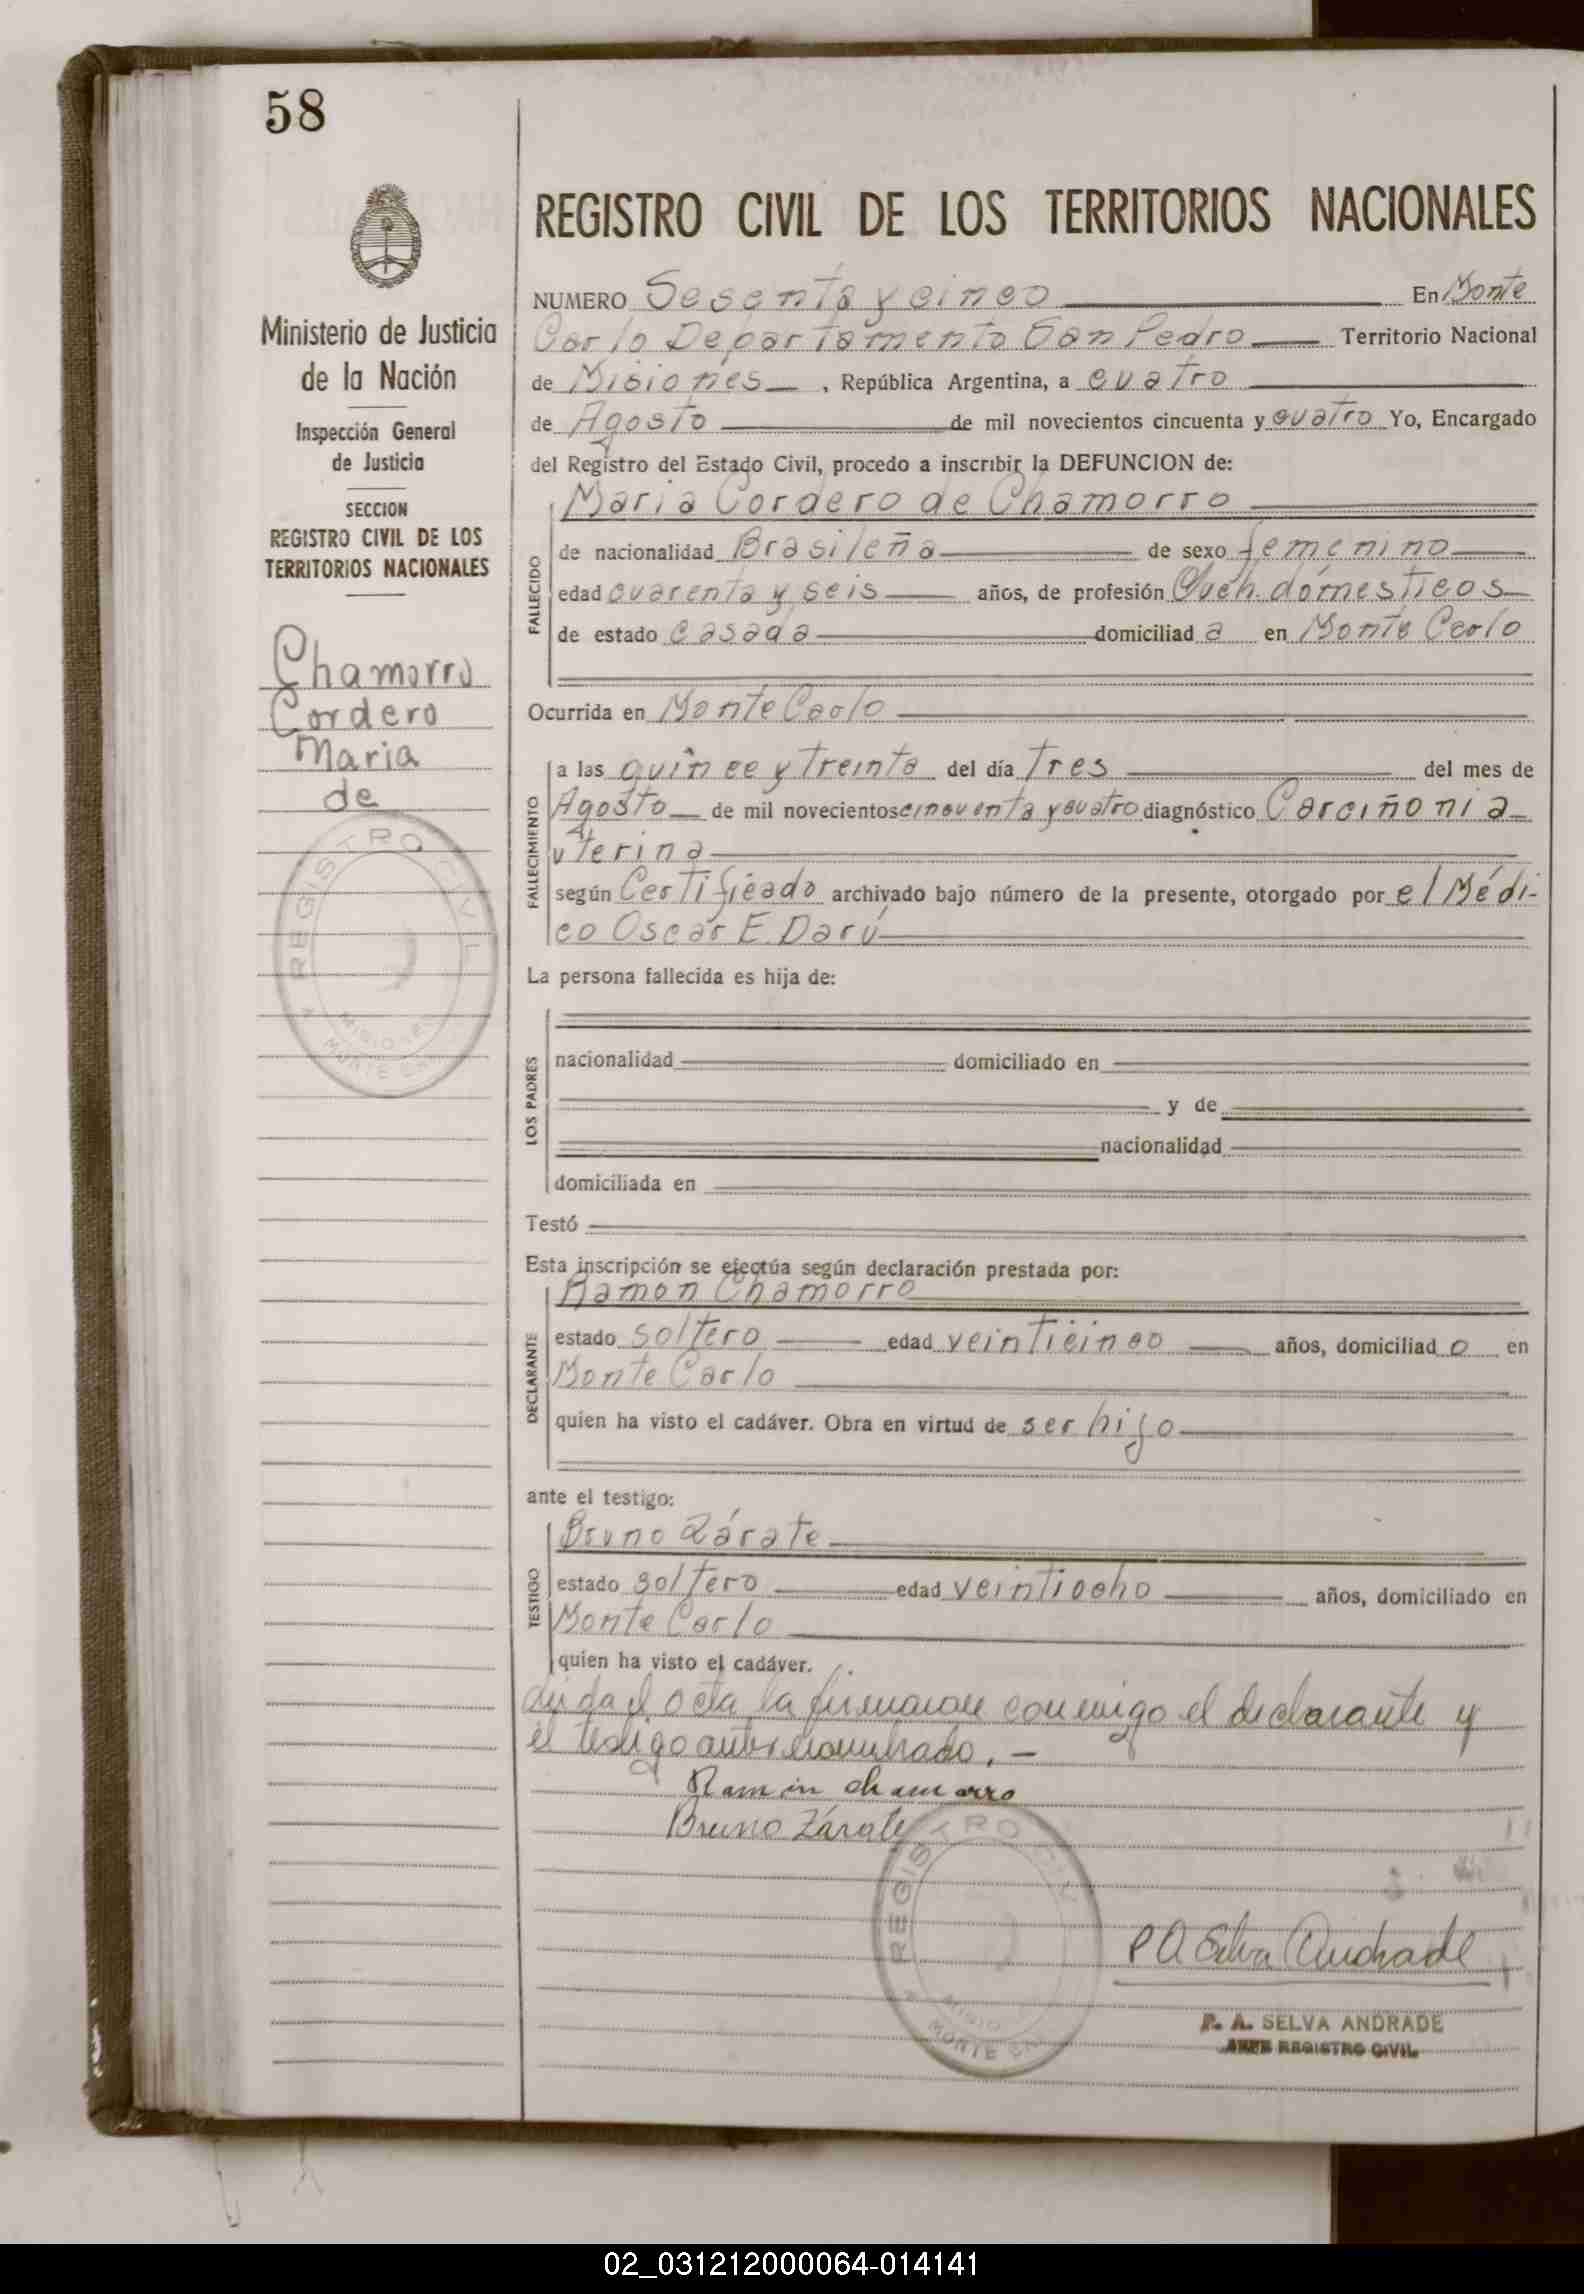 58
Ministerio de Justicia
de la Nación
Inspección General
de Justicia
SECCION
REGISTRO CIVIL DE LOS
TERRITORIOS NACIONALES
Chamorro
Cordero
Maria
de
REGISTRO CIVIL
MISIONES
MONTE
REGISTRO CIVIL DE LOS TERRITORIOS NACIONALES
NUMERO Sesenta y cinco En Monte
Carlo Departamento San Pedro Territorio Nacional
de Misiones, República Argentina, a cuatro
de Agosto de mil novecientos cincuenta y cuatro Yo, Encargado
del Registro del Estado Civil, procedo a inscribir la DEFUNCION de:
Maria Cordero de Chamorro
FALLECIDO
de nacionalidad Brasileña de sexo femenino
edad cuarenta y seis años, de profesión Queh. domesticos
de estado casada domiciliad a en Monte Carlo
Ocurrida en Monte Carlo
FALLECIMIENTO
a las quince y treinta del día tres del mes de
Agosto de mil novecientos cincuenta y cuatro diagnóstico Carciñonia
uterina
según Certificado archivado bajo número de la presente, otorgado por el Médi-
co Oscar E. Darú
La persona fallecida es hija de:
LOS PADRES
nacionalidad domiciliado en
y de
nacionalidad
domiciliada en
Testó
Esta inscripción se efectúa según declaración prestada por:
Ramon Chamorro
DECLARANTE
estado soltero edad veinticinco años, domiciliad o en
Monte Carlo
quien ha visto el cadáver. Obra en virtud de ser hijo
ante el testigo:
Bruno Zárate
TESTIGO
estado soltero edad veintiocho años, domiciliado en
Monte Carlo
quien ha visto el cadáver.
leida el acta la firmaron conmigo el declarante y
el testigo antes nombrado. -
Ramón chamorro
Bruno Zárate
REGISTRO CIVIL
MONTE
P A Selva Andrade
P. A. SELVA ANDRADE
JEFE REGISTRO CIVIL
02_031212000064-014141